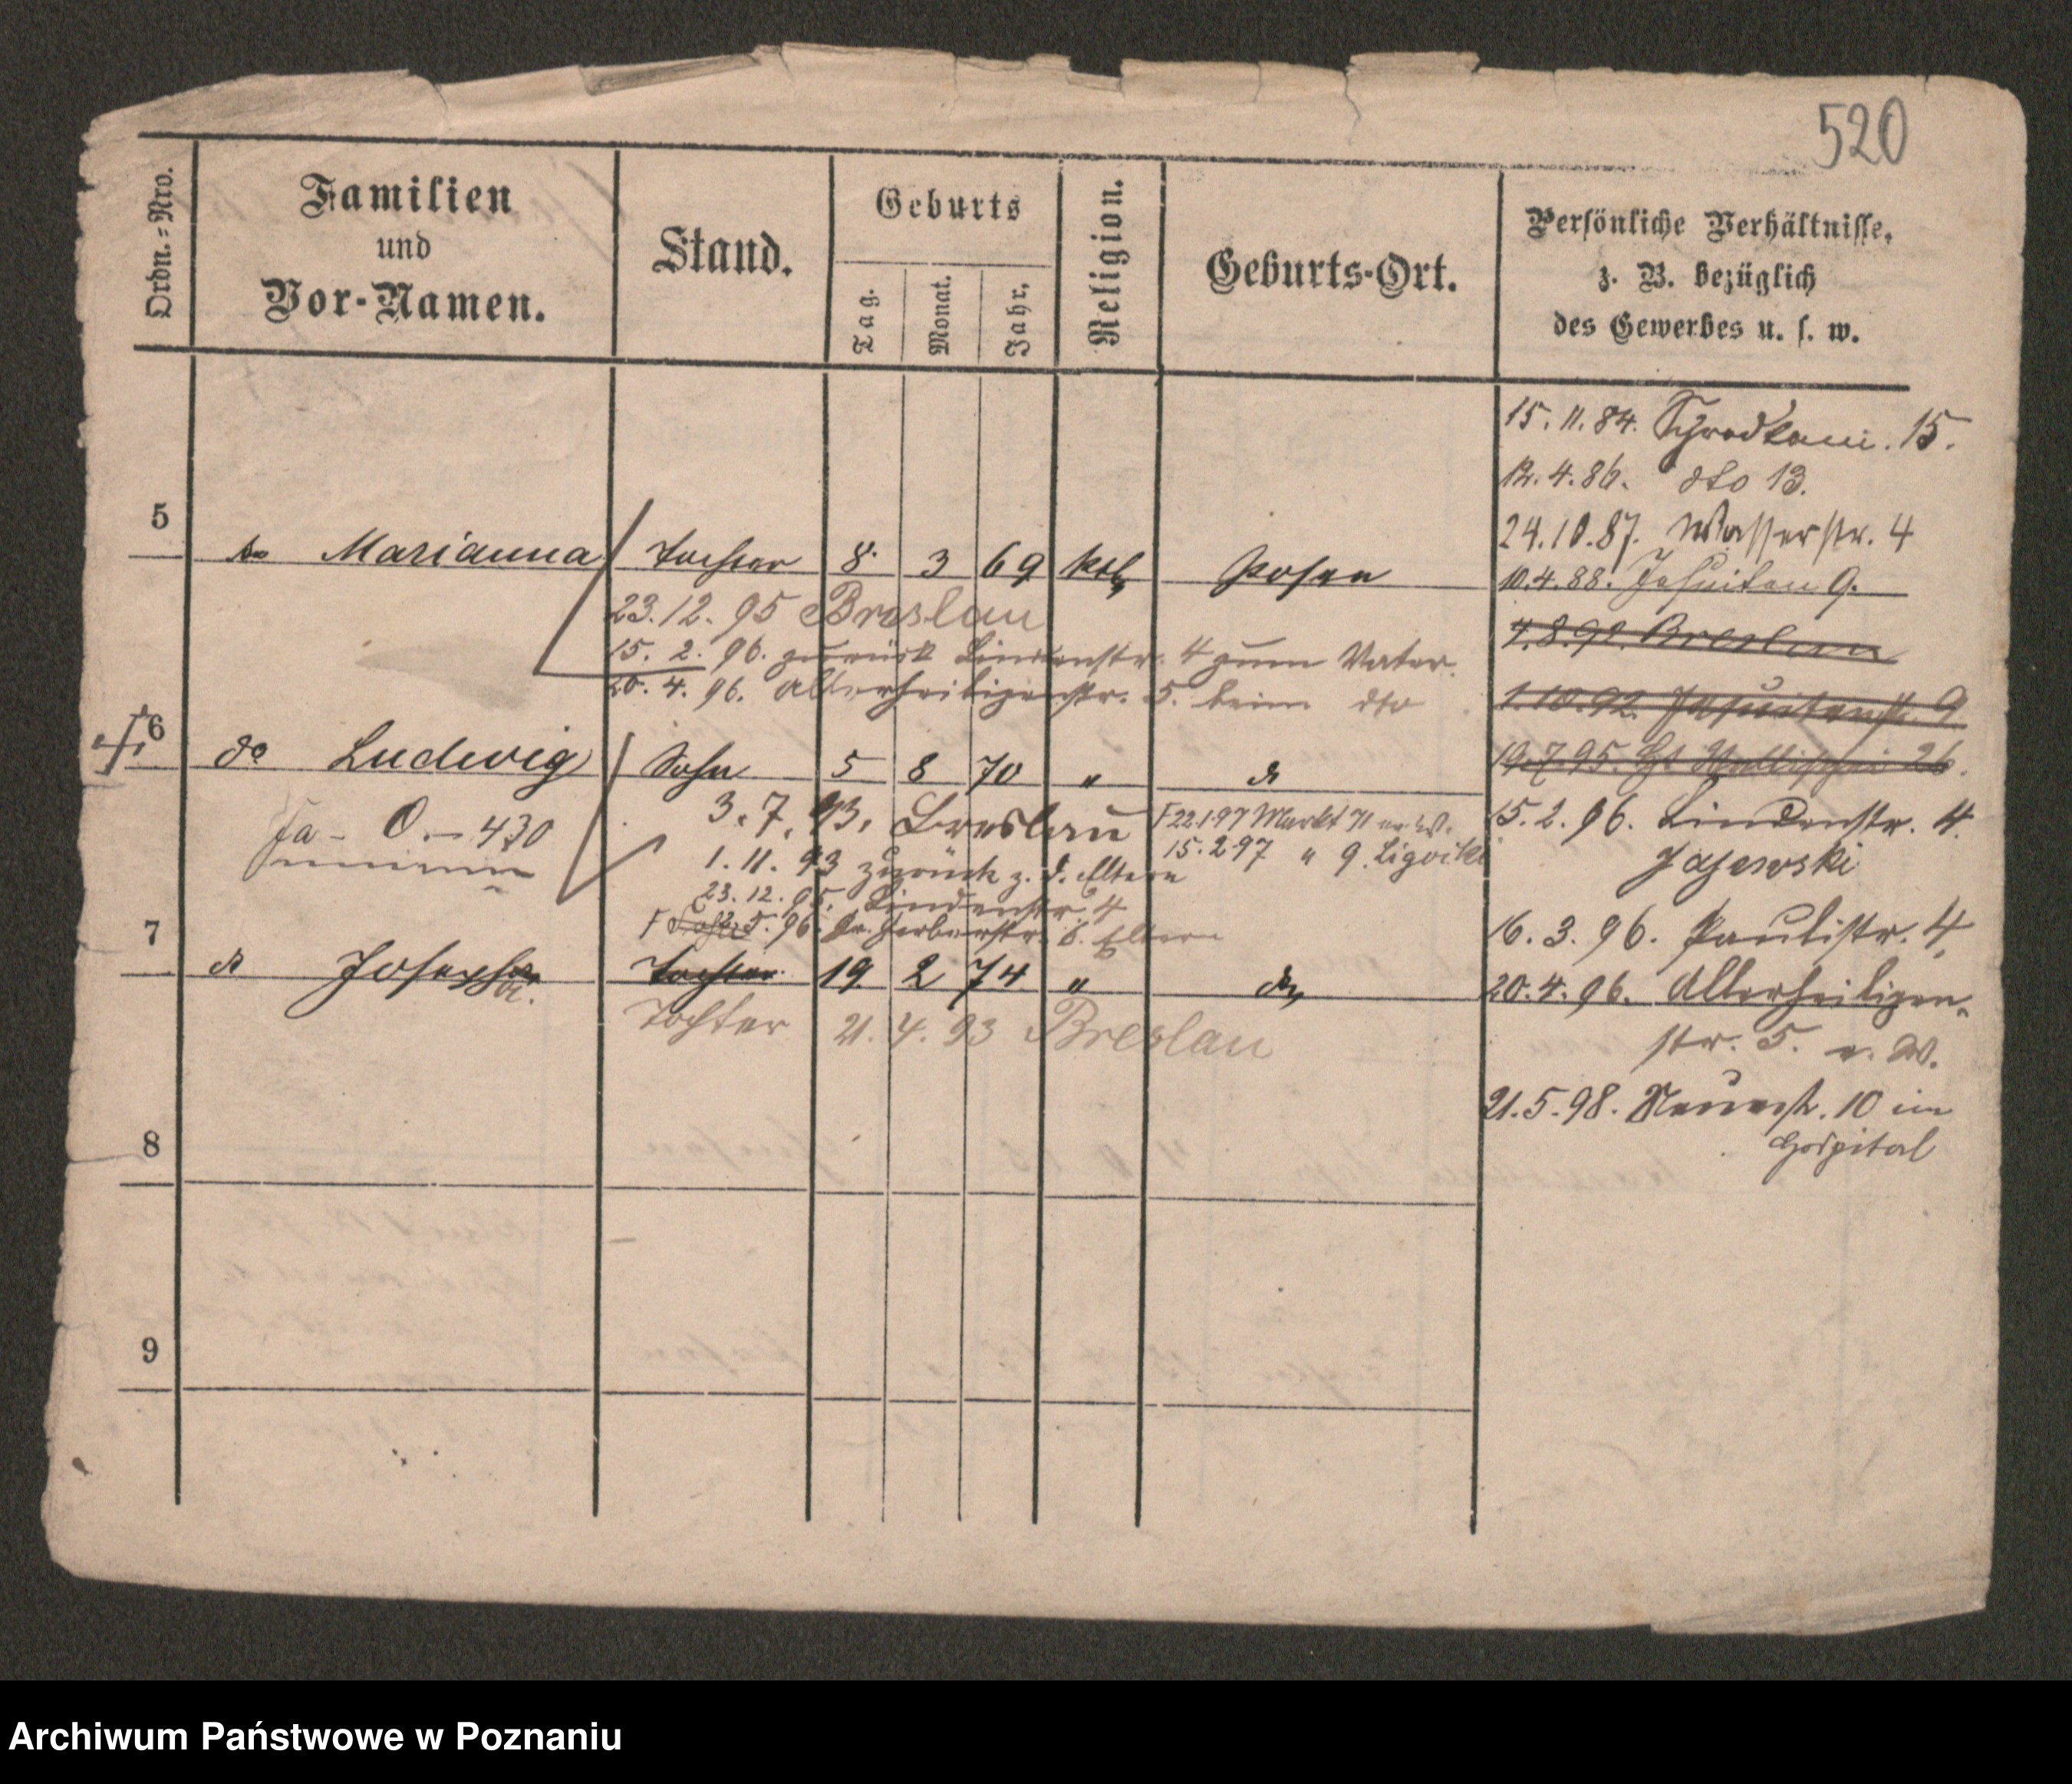 520
Ordn.-Nro.
Familien
und
Vor-Namen.
Stand.
Geburts
Tag.
Monat.
Jahr.
Religion.
Geburts-Ort.
Persönliche Verhältnisse,
z. B. bezüglich
des Gewerbes u. s. w.
15. 11. 84. Schrodkam. 15.
12. 4. 86. dto 13.
24. 10. 87. Wasserstr. 4
10. 4. 88. Jesuiten 9.
4. 8. 92. Breslau
1. 10. 92. Jesuitenstr. 9
19. 7. 95. Wallischei 26.
15. 2. 96. Lindenstr. 4.
Jajewski
16. 3. 96. Paulistr. 4,
20. 4. 96. Allerheiligen-
str. 5. v. W.
21. 5. 98. Neuestr. 10 im
Hospital
5 Marianna Tochter 8. 3 69 kth Posen
23. 12. 95 Breslau
15. 2. 96. zurück Lindenstr. 4 zum Vater.
20. 4. 96. Allerheiligenstr. 5. beim dto
6 do Ludwig Sohn 5 8 70 " do
Ja - O. - 430
3. 7. 93. Breslau
1. 11. 93 zurück z. d. Eltern
23. 12. 95. Lindenstr. 4
5. 96. Gr. Gerberstr. 6. Eltern
F 22.1.97 Markt 71
15. 2 97 " 9. Ligocki
7 do Josepha Tochter 19 2 74 " do
Tochter 21. 4. 93 Breslau
8
9
Archiwum Państwowe w Poznaniu